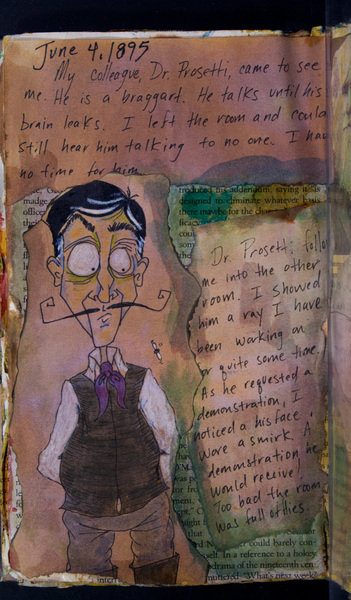 June 4, 1895
My colleague, Dr. Prosetti, came to see
me. He is a braggart. He talks until his
brain leaks. I left the room and could
still hear him talking to no one. I have
no time for him
roduced my addendum, saying it was
designed to eliminate whatever basis
Dr. Prosetti follo
me into the other
room. I showed
him a ray I have
been working on
for quite some time.
As he requested a
demonstration, I
noticed a his face
wore a smirk. A
demonstration he
would receive!
Too bad the room
was full of lies.
could barely con-
self. In a reference to a hokey
drama of the nineteenth cen-
muttered, "What's next week?